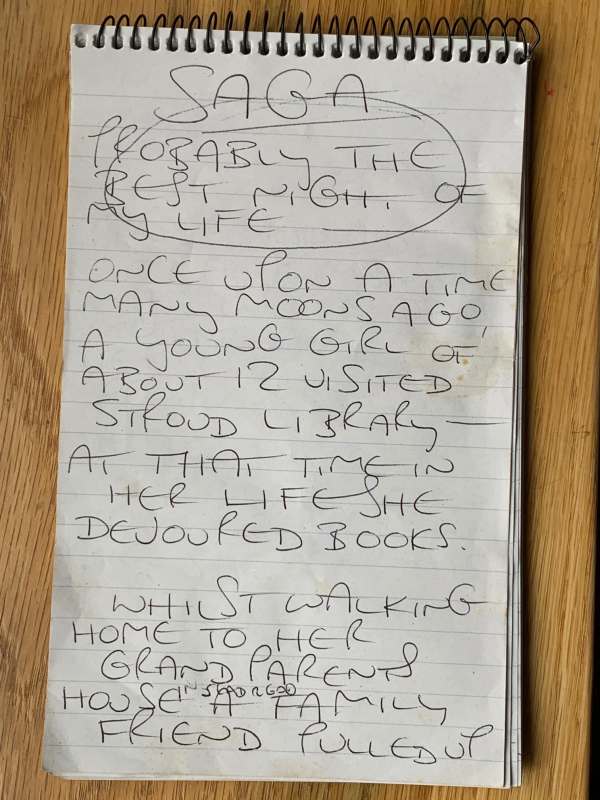 SAGA
PROBABLY THE
BEST NIGHT. OF
MY LIFE
ONCE UPON A TIME
MANY MOONS AGO,
A YOUNG GIRL OF
ABOUT 12 VISITED
STROUD LIBRARY —
AT THAT TIME IN
HER LIFE SHE
DEVOURED BOOKS.
WHILST WALKING
HOME TO HER
GRAND PARENTS
HOUSE A FAMILY
FRIEND PULLED UP